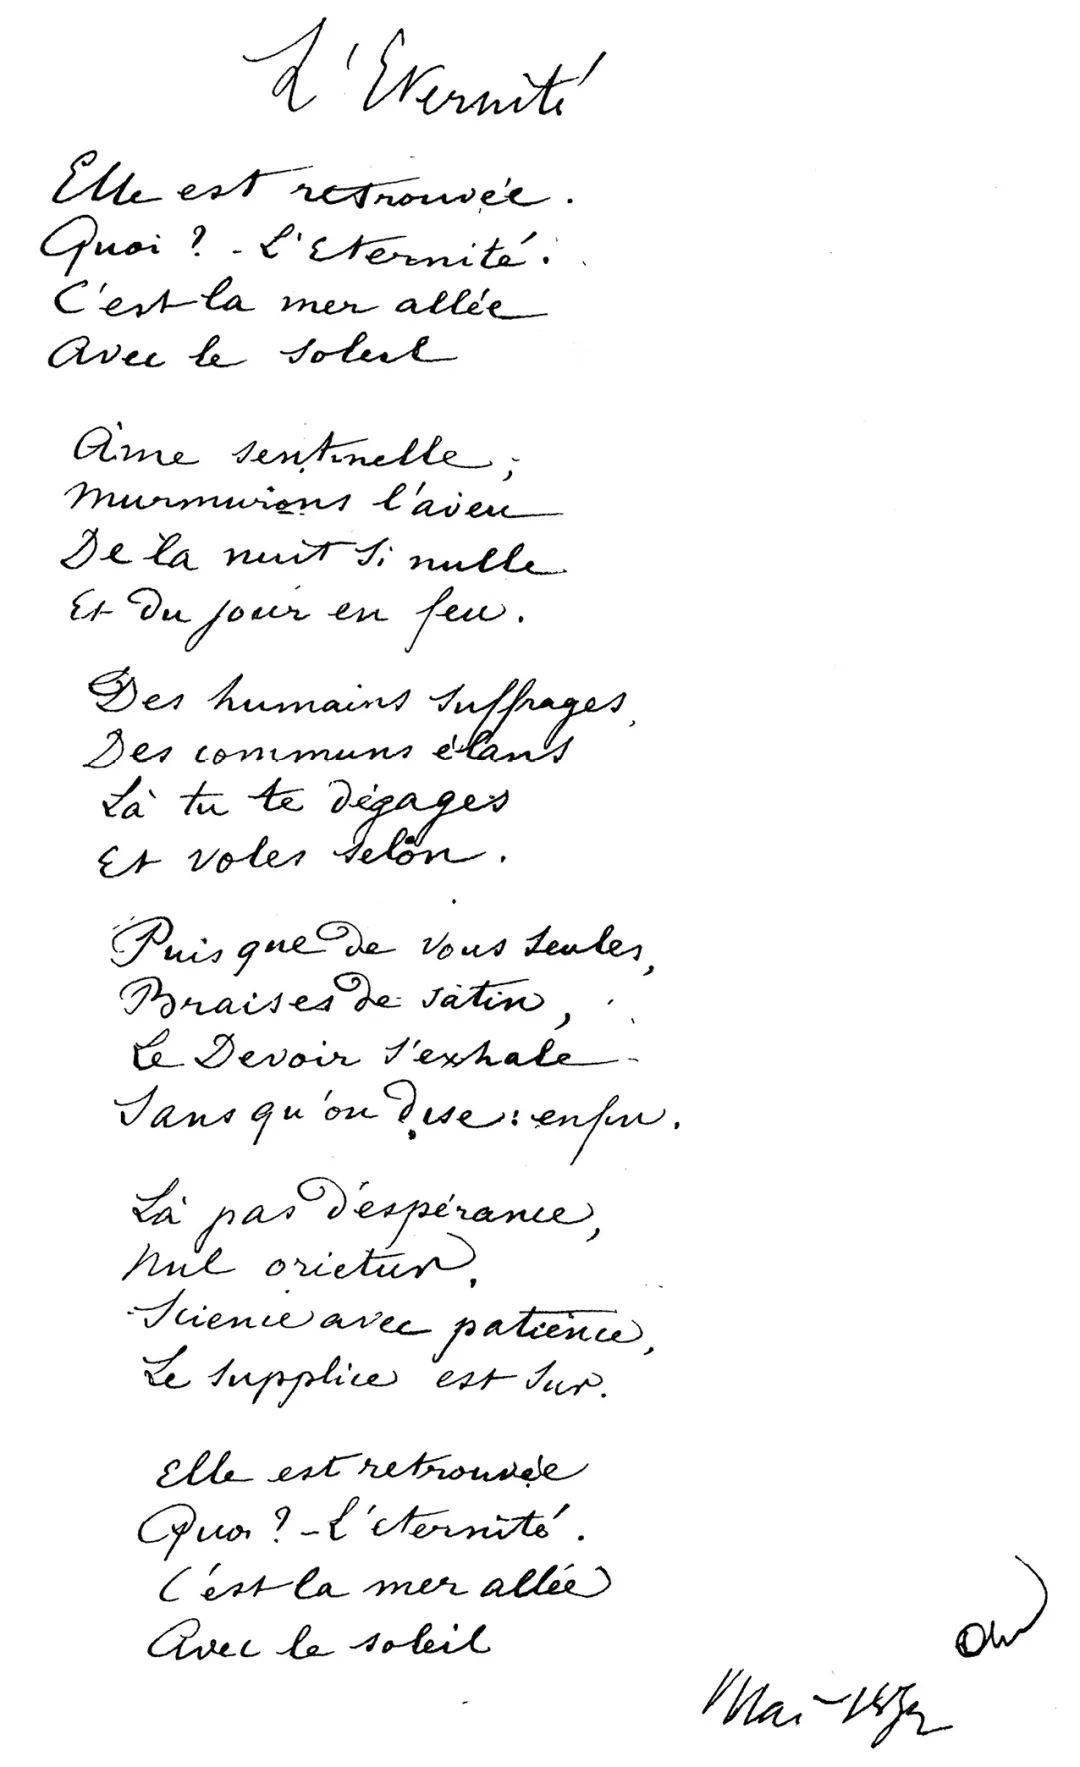 L'Eternité
Elle est retrouvée.
Quoi ? - L'Eternité.
C'est la mer allée
Avec le soleil
Ame sentinelle,
Murmurons l'aveu
De la nuit si nulle
Et du jour en feu.
Des humains suffrages,
Des communs élans
Là tu te dégages
Et voles selon.
Puisque de vous seules,
Braises de satin,
Le Devoir s'exhale
Sans qu'on dise : enfin.
Là pas d'espérance,
Nul orietur.
Science avec patience,
Le supplice est sûr.
Elle est retrouvée
Quoi ? - L'éternité.
C'est la mer allée
Avec le soleil
Mai 1872